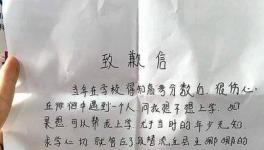 致歉信
当年在学校得知高考分数后,很伤心,
在悲伤中遇到一个人问我想不想上学,如
果想,可以帮我上学,尤于当时的年少无知,
求学心切,就答应了